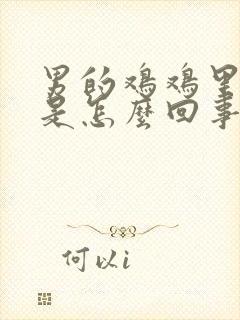 男的鸡鸡里
是怎麼回事
何以i